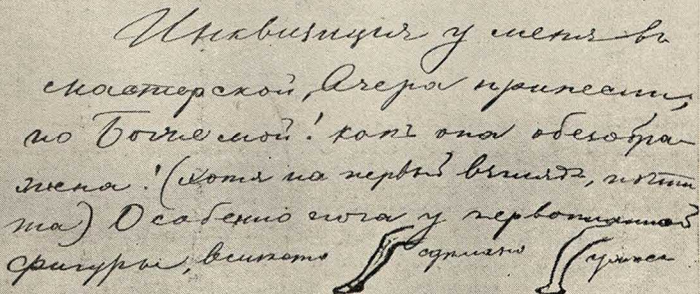 Инквизиция у меня въ
мастерской, вчера принесли,
но Боже мой! какъ она обезобра-
жена! (хотя на первый взглядъ,
та) Особенно нога у первопланной
фигуры, вместо сделано